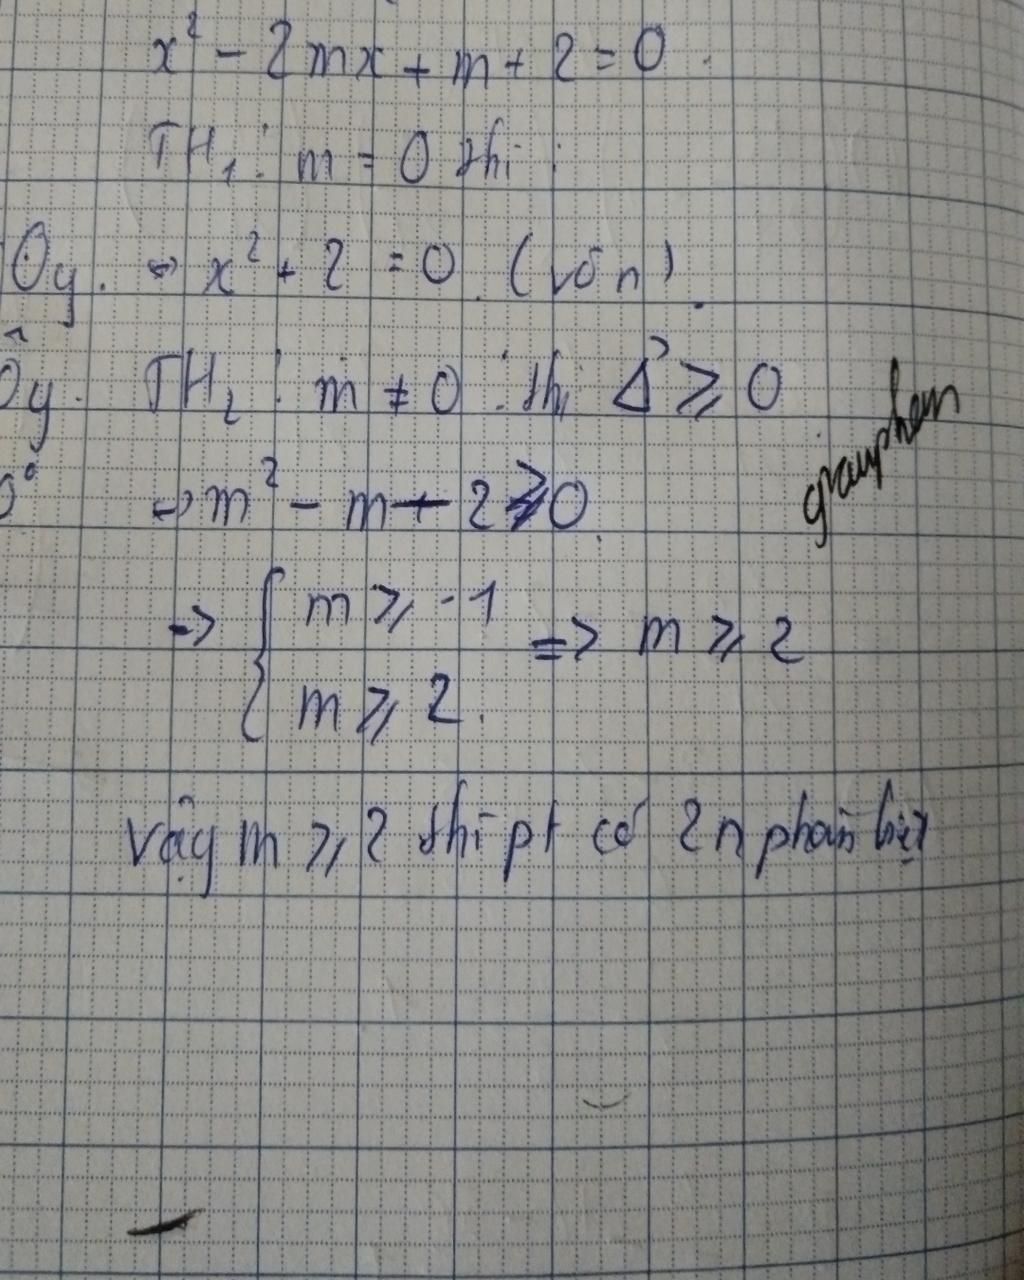 x² - 2mx + m + 2 = 0.
TH₁: m = 0 thì:
Oy. ⇒ x² + 2 = 0. (vô n).
Oy. TH₂: m ≠ 0: thì Δ' ≥ 0
⇒ m² - m - 2 ≥ 0.
⇒ { m ≥ -1
m ≥ 2. ⇒ m ≥ 2
Vậy m ≥ 2 thì pt có 2n phân biệt